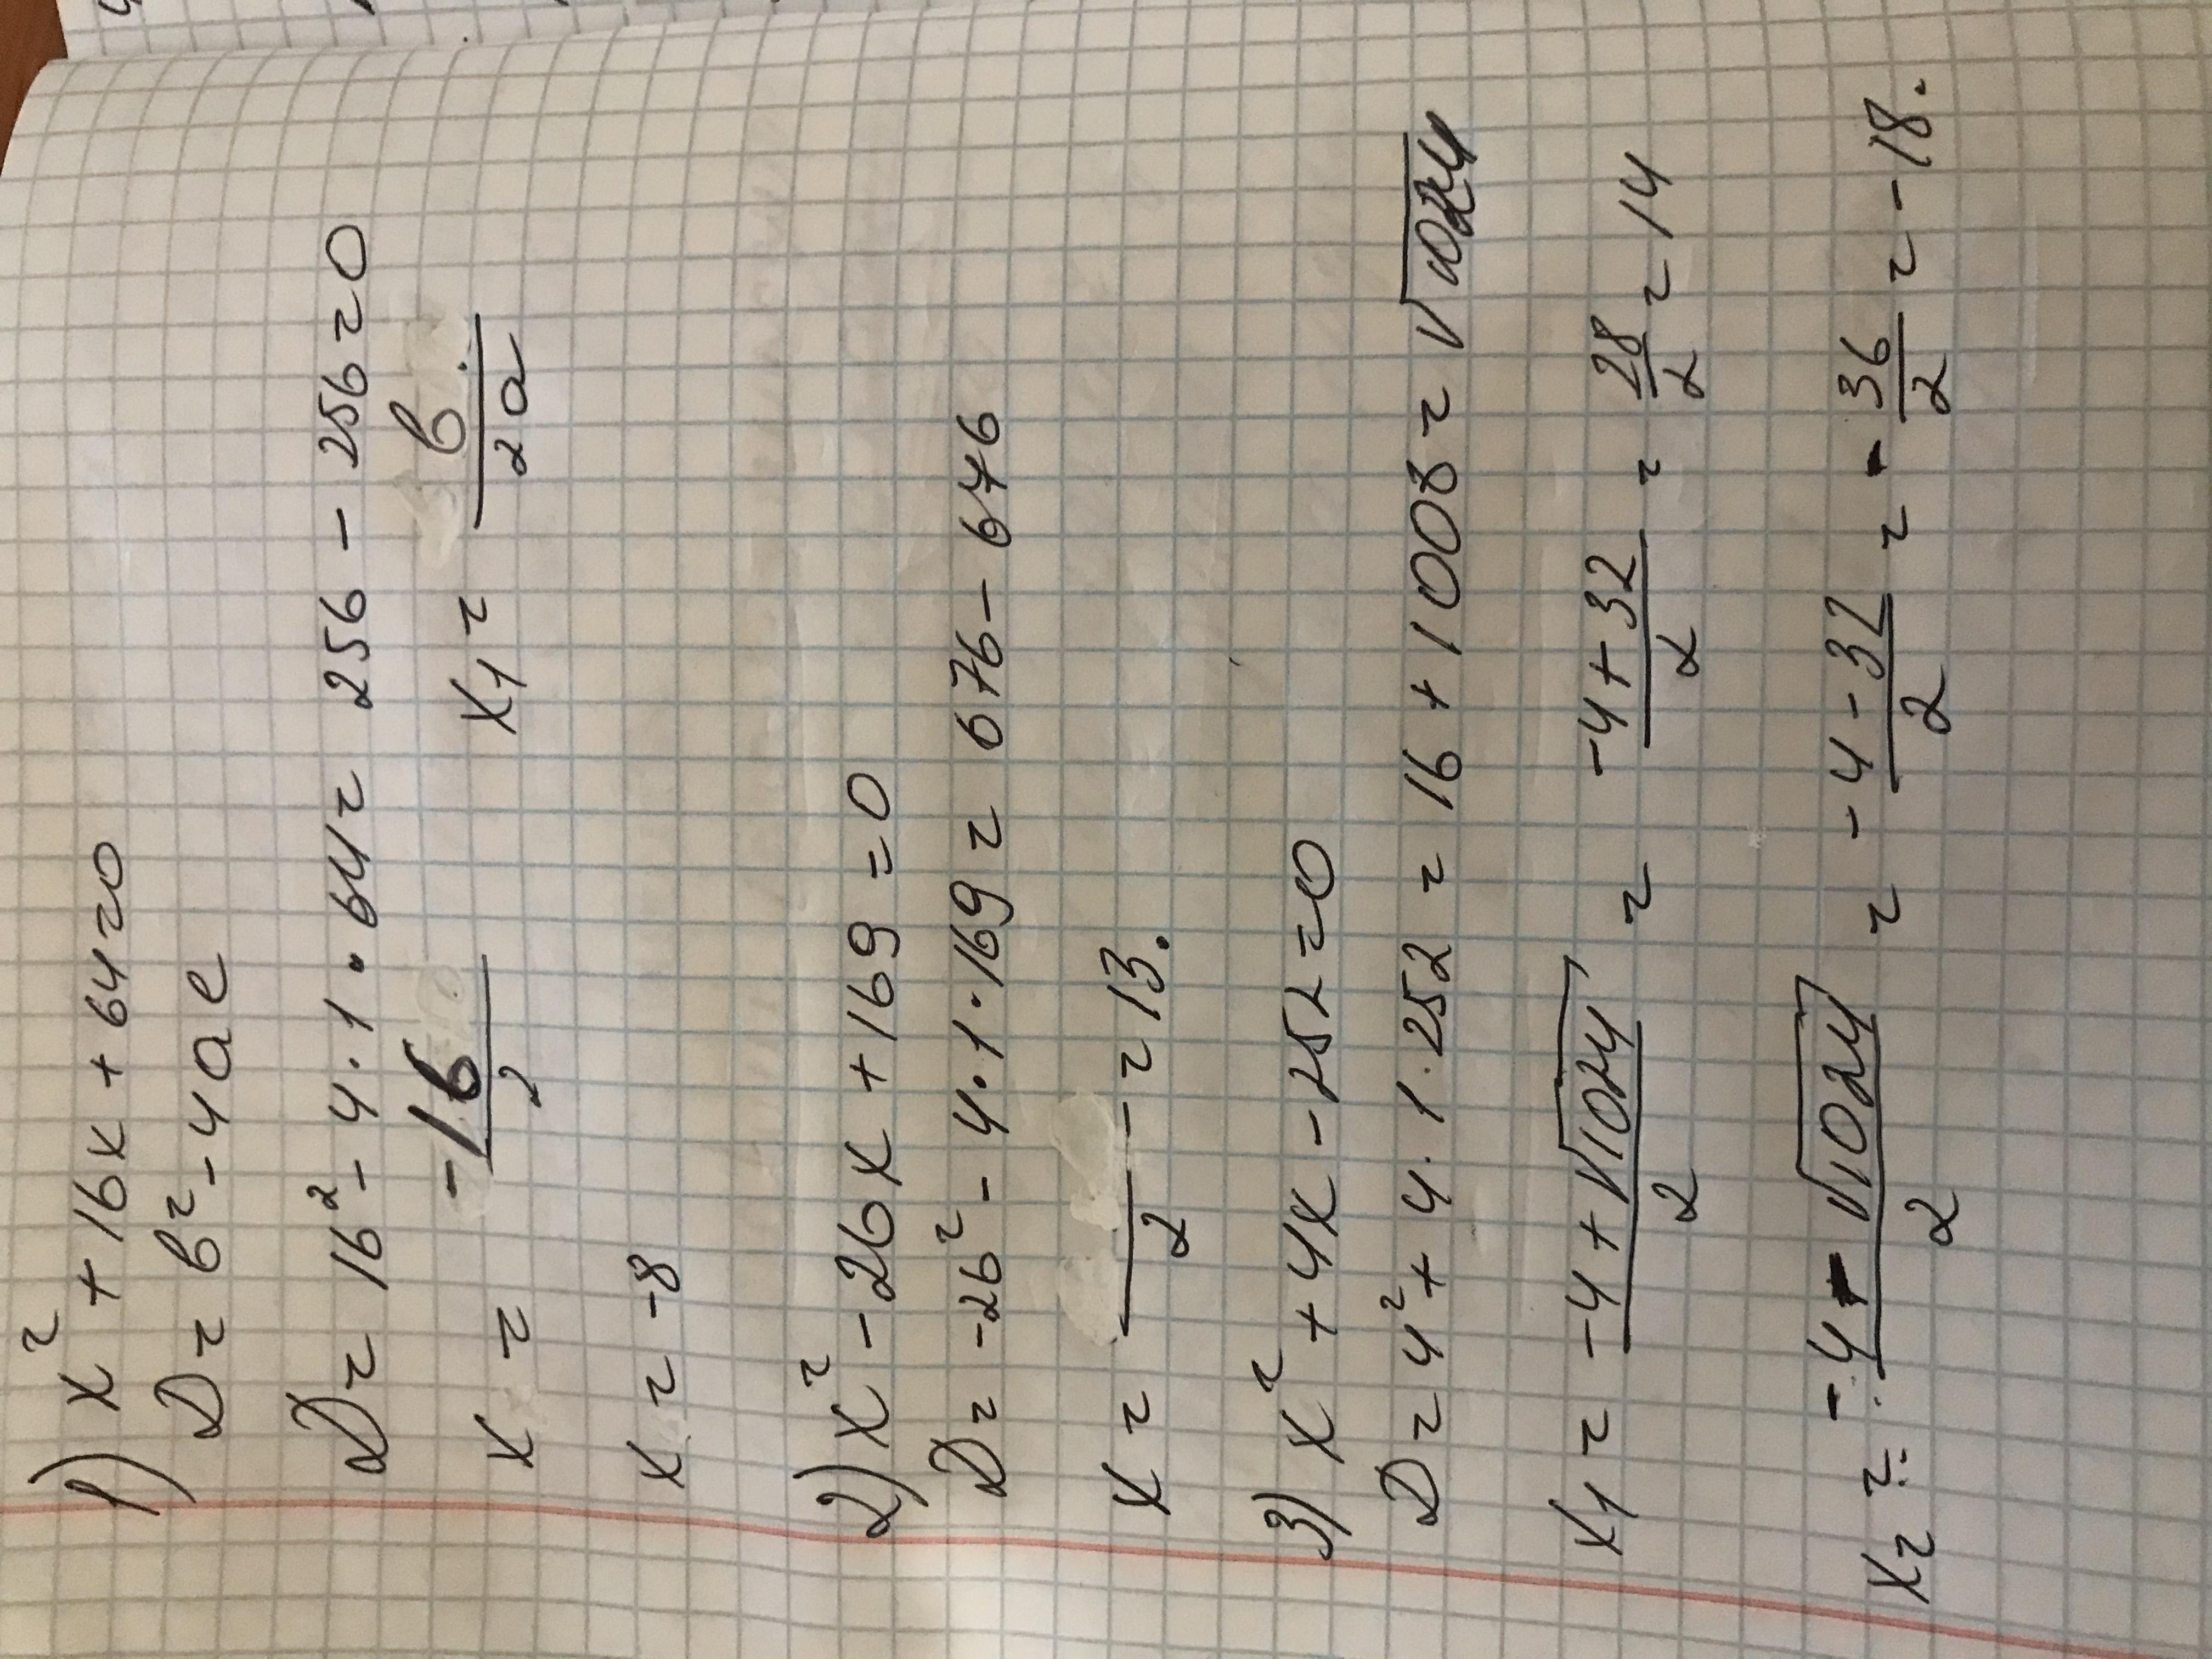 1) x² + 16x + 64 = 0
D = b² - 4ac
D = 16² - 4·1·64 = 256 - 256 = 0
x = -16/2    x₁ = b/2a
x = -8
2) x² - 26x + 169 = 0
D = -26² - 4·1·169 = 676 - 676
x = /2 = 13.
3) x² + 4x - 252 = 0
D = 4² + 4·1·252 = 16 + 1008 = √1024
x₁ = (-4 + √1024)/2 = (-4 + 32)/2 = 28/2 = 14
x₂ = (-4 - √1024)/2 = (-4 - 32)/2 = -36/2 = -18.